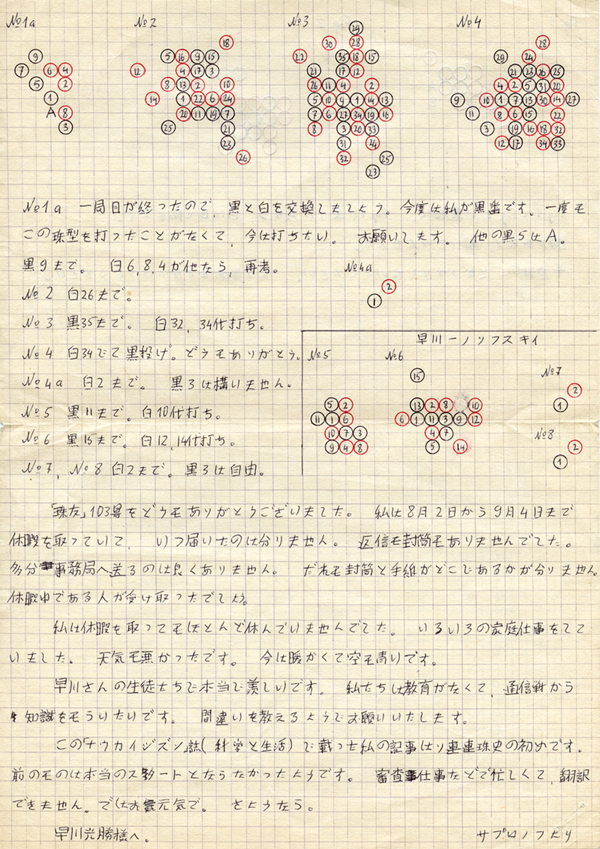 №1a №2 №3 №4
№1a 一局目が終ったので、黒と白を交換しましょう。今度は私が黒番です。一度も
この珠型を打ったことがなくて、今は打ちたい。 お願いします。 他の黒5はA。
黒9まで。 白6,8,4が他なら、再考。 №4a
№2 白26まで。
№3 黒35まで。 白32,34代打ち。
№4 白34まで黒投げ。どうもありがとう。
№4a 白2まで。 黒3は構いません。
№5 黒11まで。白10代打ち。
№6 黒15まで。白12,14代打ち。
№7,№8 白2まで。黒3は自由。
早川ーノッフスキイ
№5 №6 №7
№8
「珠友」103号をどうもありがとうございました。 私は8月2日から9月4日まで
休暇を取っていて、 いつ届いたのは分りません。 返信も封筒もありませんでした。
多分事務局へ送るのは良くありません。 だれも封筒と手紙がどこであるかが分りません。
休暇中である人が受け取ったでしょう。
私は休暇を取ってもほとんど休んでいませんでした。 いろいろの家庭仕事をして
いました。 天気も悪かったです。 今は暖かくて空も青いです。
早川さんの生徒たちで本当で美しいです。 私たちは教育がなくて、通信戦から
知識をもらいたいです。 間違いを教えるようでお願いいたします。
この「ナウカイジズン」誌(科学と生活)で載った私の記事はソ連連珠史の初めです。
前のものは本当のスタートとならなかったようです。 審査仕事などで忙しくて、翻訳
できません。ではお元気で。 さようなら。
早川光勝様へ。 サプロノフより